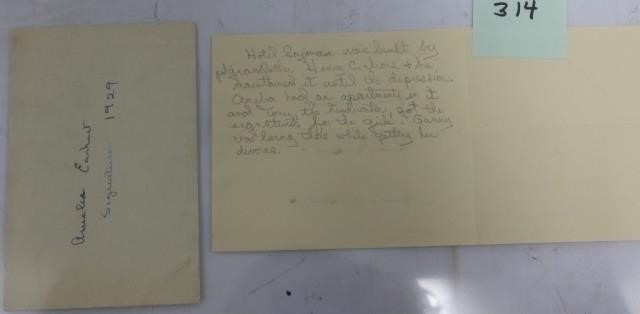 Amelia Earhart
Signature 1929
314
Hotel Seymour was built by
grandfather Henry C. & he
maintained it until the depression.
Amelia had an apartment in it
and Tony the got the
signature for the girls. Ganny
was living there while getting her
divorce.